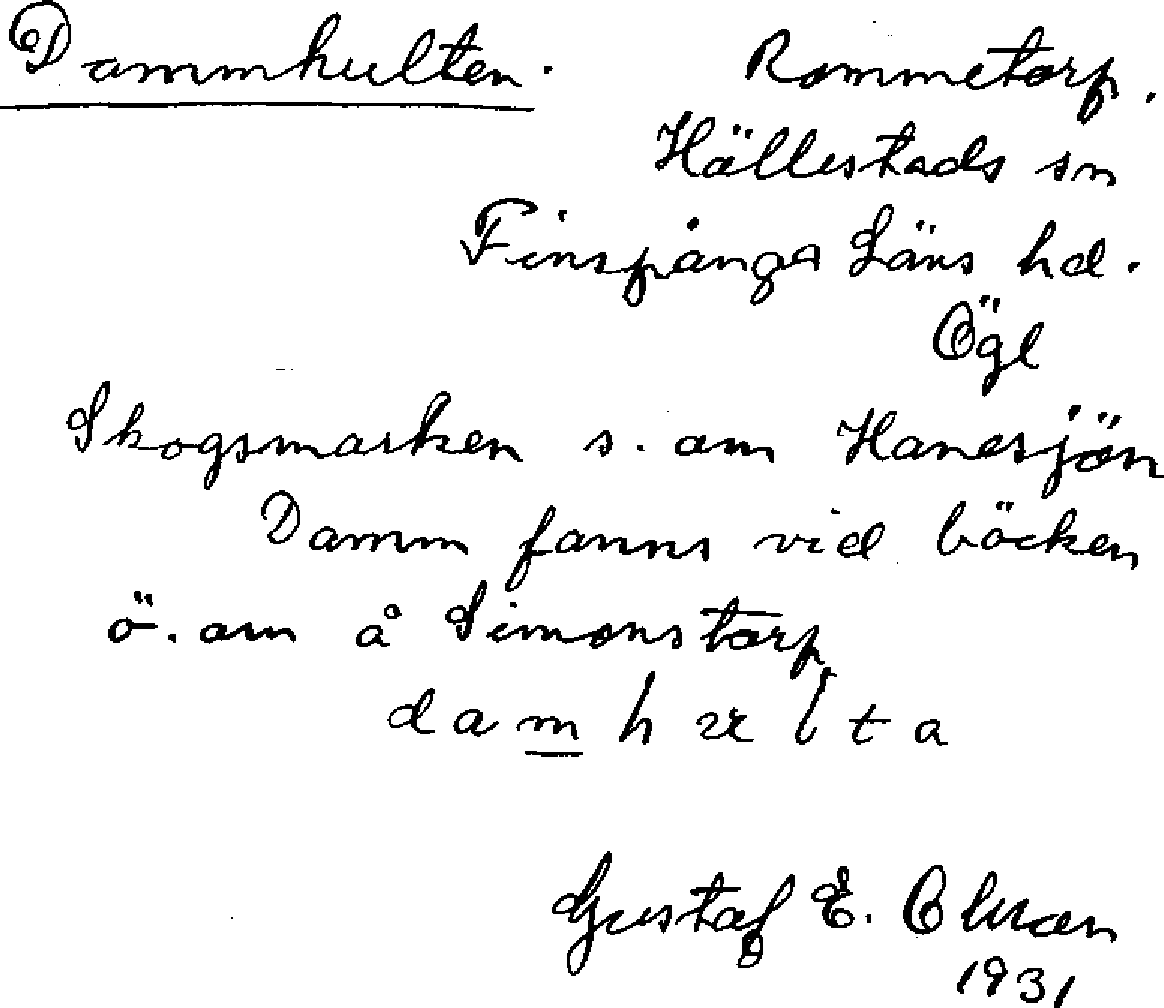 Dammhulten. Rommetorp.
Hällestads sn
Finspånga Läns hd.
Ögl
Skogsmarken s. om Hanesjön
Damm fanns vid bäcken
ö. om å Simonstorp
damhulta
Gustaf E.
1931